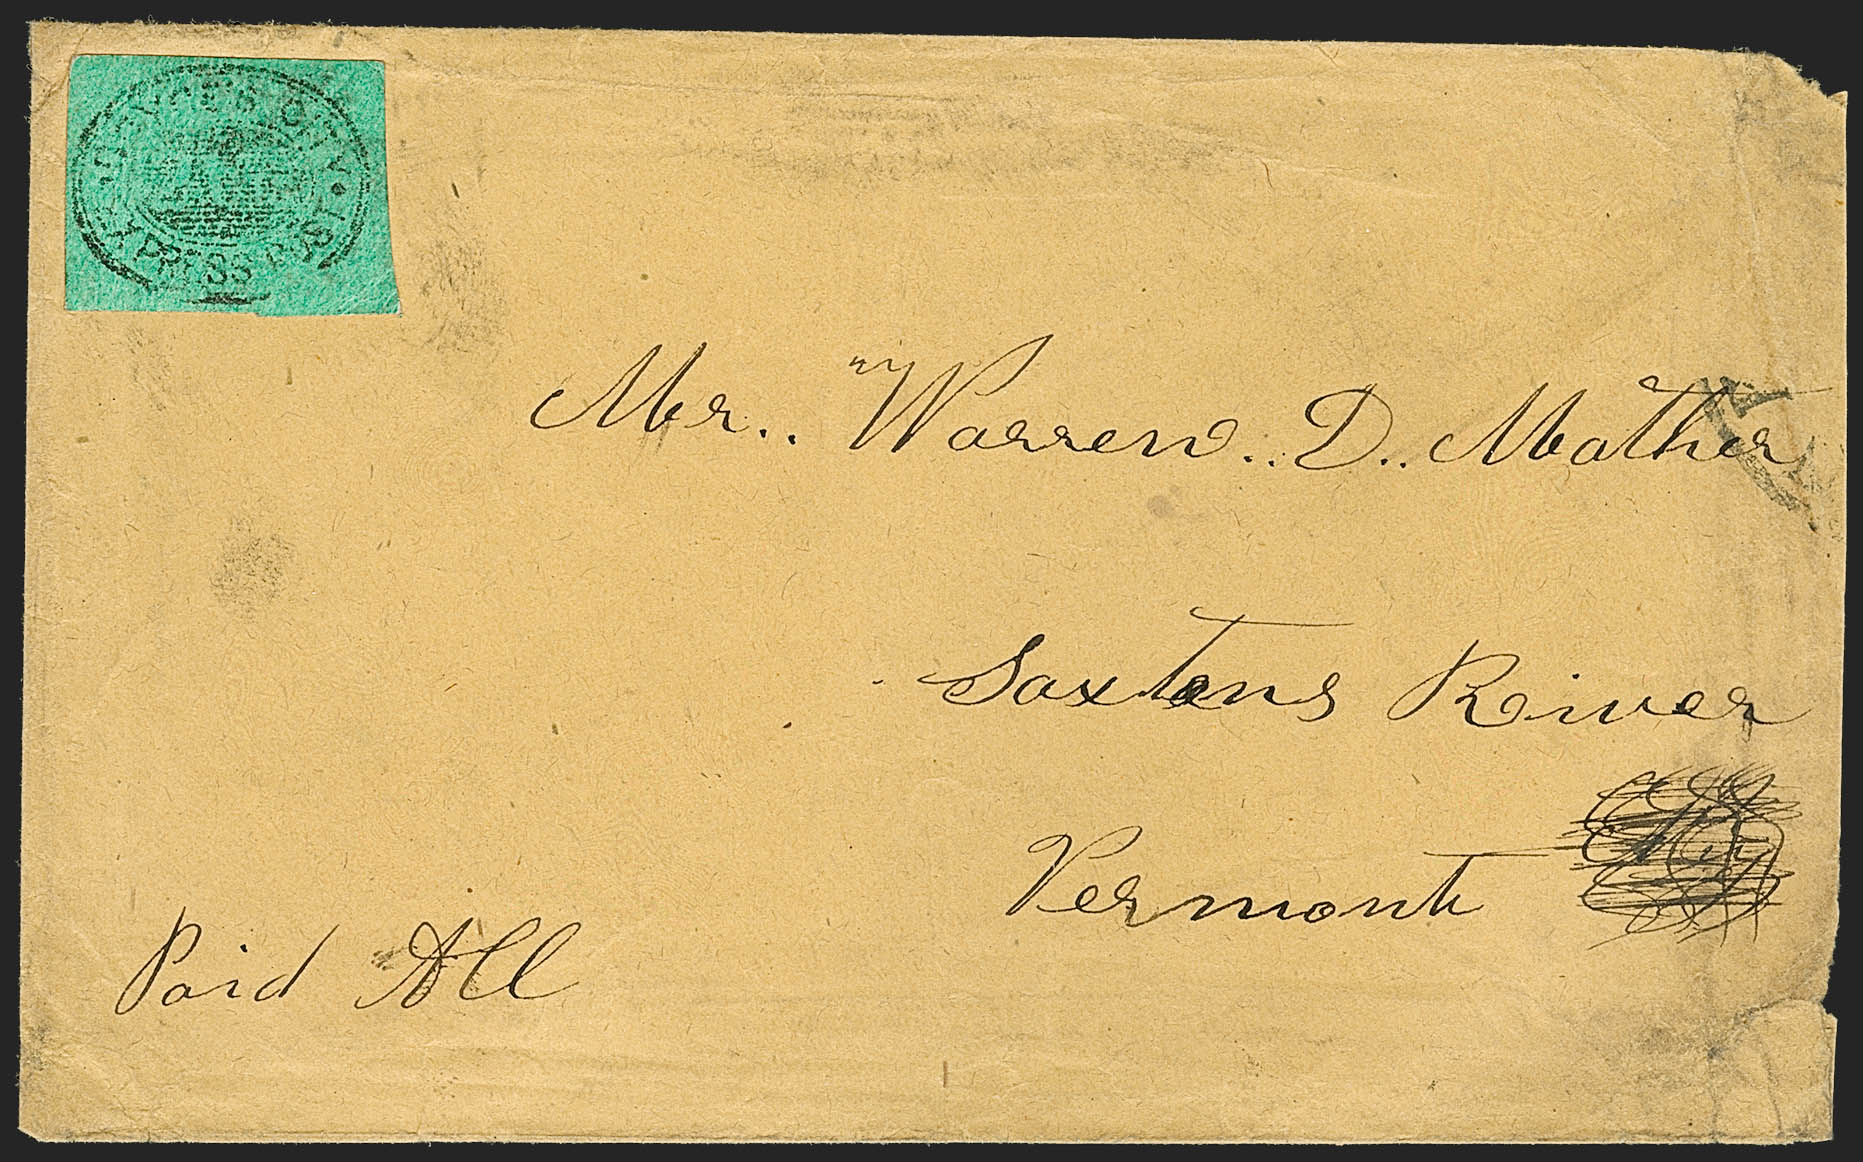 Mr.. Warren.. D.. Mather
Saxtons River
Vermont
Paid All